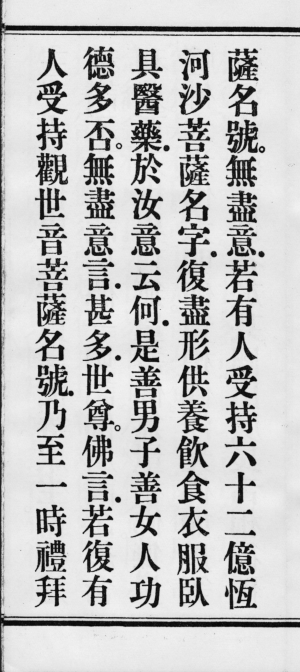 薩名號。無盡意.若有人受持六十二億恆
河沙菩薩名字.復盡形供養飲食衣服臥
具醫藥.於汝意云何.是善男子善女人功
德多否。無盡意言.甚多.世尊。佛言.若復有
人受持觀世音菩薩名號.乃至一時禮拜